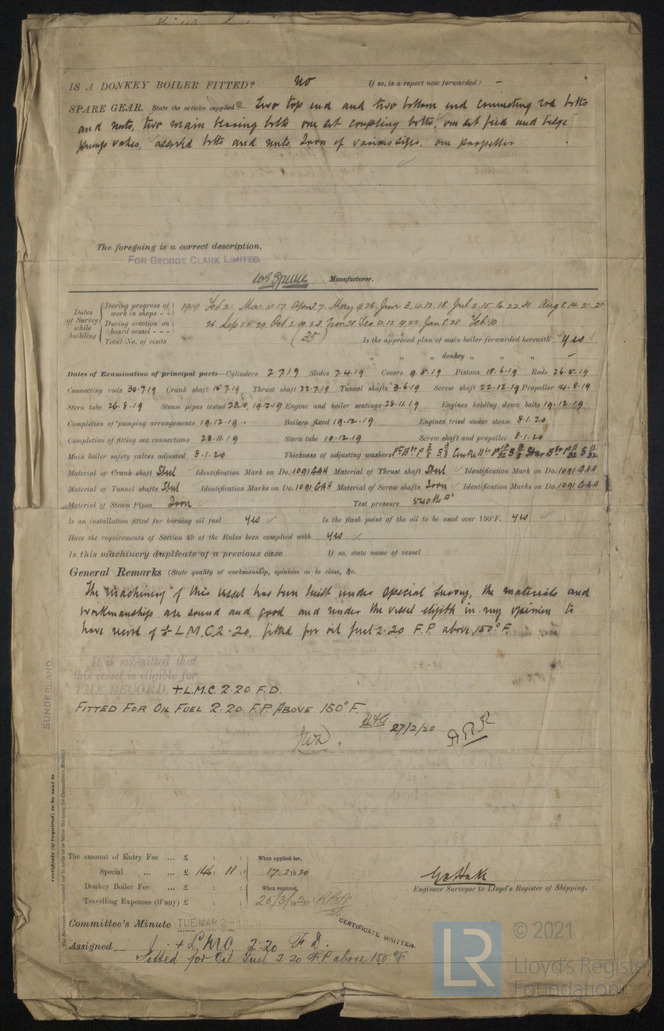 IS A DONKEY BOILER FITTED? No If so, is a report now forwarded? –
SPARE GEAR. State the articles supplied:– Two top end and two bottom end connecting rod bolts
and nuts, two main bearing bolts one set coupling bolts, one set feed and bilge
pumps valves, assorted bolts and nuts, Iron of various sizes. one propeller
The foregoing is a correct description,
FOR GEORGE CLARK LIMITED.
Manufacturer.
Dates of Survey while building
During progress of work in shops - - 1919 Feb 2. Mar. 10. 17. Apr. 3. 7. May 9.
During erection on board vessel - - -
Total No. of visits (35) Is the approved plan of main boiler forwarded herewith yes
" " " donkey " " " –
Dates of Examination of principal parts—Cylinders 2.7.19 Slides 7.4.19 Covers 9.8.19 Pistons 18.6.19 Rods 26.8.19
Connecting rods 30.7.19 Crank shaft 15.7.19 Thrust shaft 22.7.19 Tunnel shafts 3.6.19 Screw shaft 22.12.19 Propeller 21.8.19
Stern tube 26.8.19 Steam pipes tested Engine and boiler seatings 28.11.19 Engines holding down bolts 19.12.19
Completion of pumping arrangements 19.12.19. Boilers fixed 19.12.19 Engines tried under steam 8.1.20
Completion of fitting sea connections 28.11.19 Stern tube 10.12.19 Screw shaft and propeller 8.1.20
Main boiler safety valves adjusted 8.1.20 Thickness of adjusting washers
Material of Crank shaft Steel Identification Mark on Do. 1091 GAH Material of Thrust shaft Steel Identification Mark on Do. 1091 GAH
Material of Tunnel shafts Steel Identification Marks on Do. 1091 GAH Material of Screw shafts Iron Identification Marks on Do. 1091 GAH
Material of Steam Pipes Iron Test pressure 540 lb
Is an installation fitted for burning oil fuel yes Is the flash point of the oil to be used over 150°F. yes
Have the requirements of Section 49 of the Rules been complied with yes
Is this machinery duplicate of a previous case If so, state name of vessel
General Remarks (State quality of workmanship, opinions as to class, &c.
The machinery of this vessel has been built under special survey, the materials and
workmanship are sound and good and under the vessel eligible in my opinion to
have record of + L.M.C. 2.20, fitted for oil fuel 2.20 F.P. above 150°F.
It is submitted that
this vessel is eligible for
THE RECORD. + L.M.C. 2.20 F.D.
FITTED FOR OIL FUEL 2.20 F.P. ABOVE 150°F.
27/2/20
SUNDERLAND.
The amount of Entry Fee ... £ : : When applied for,
Special ... ... £ 146 : 11 : 17.2.20
Donkey Boiler Fee ... £ : : When received,
Travelling Expenses (if any) £ : :
Engineer Surveyor to Lloyd's Register of Shipping.
Committee's Minute TUE. MAR. 2
CERTIFICATE WRITTEN.
Assigned + L.M.C. 2.20 F.D.
Fitted for Oil Fuel 2.20 F.P. above 150°F.
LR
© 2021
Lloyd's Register
Foundation